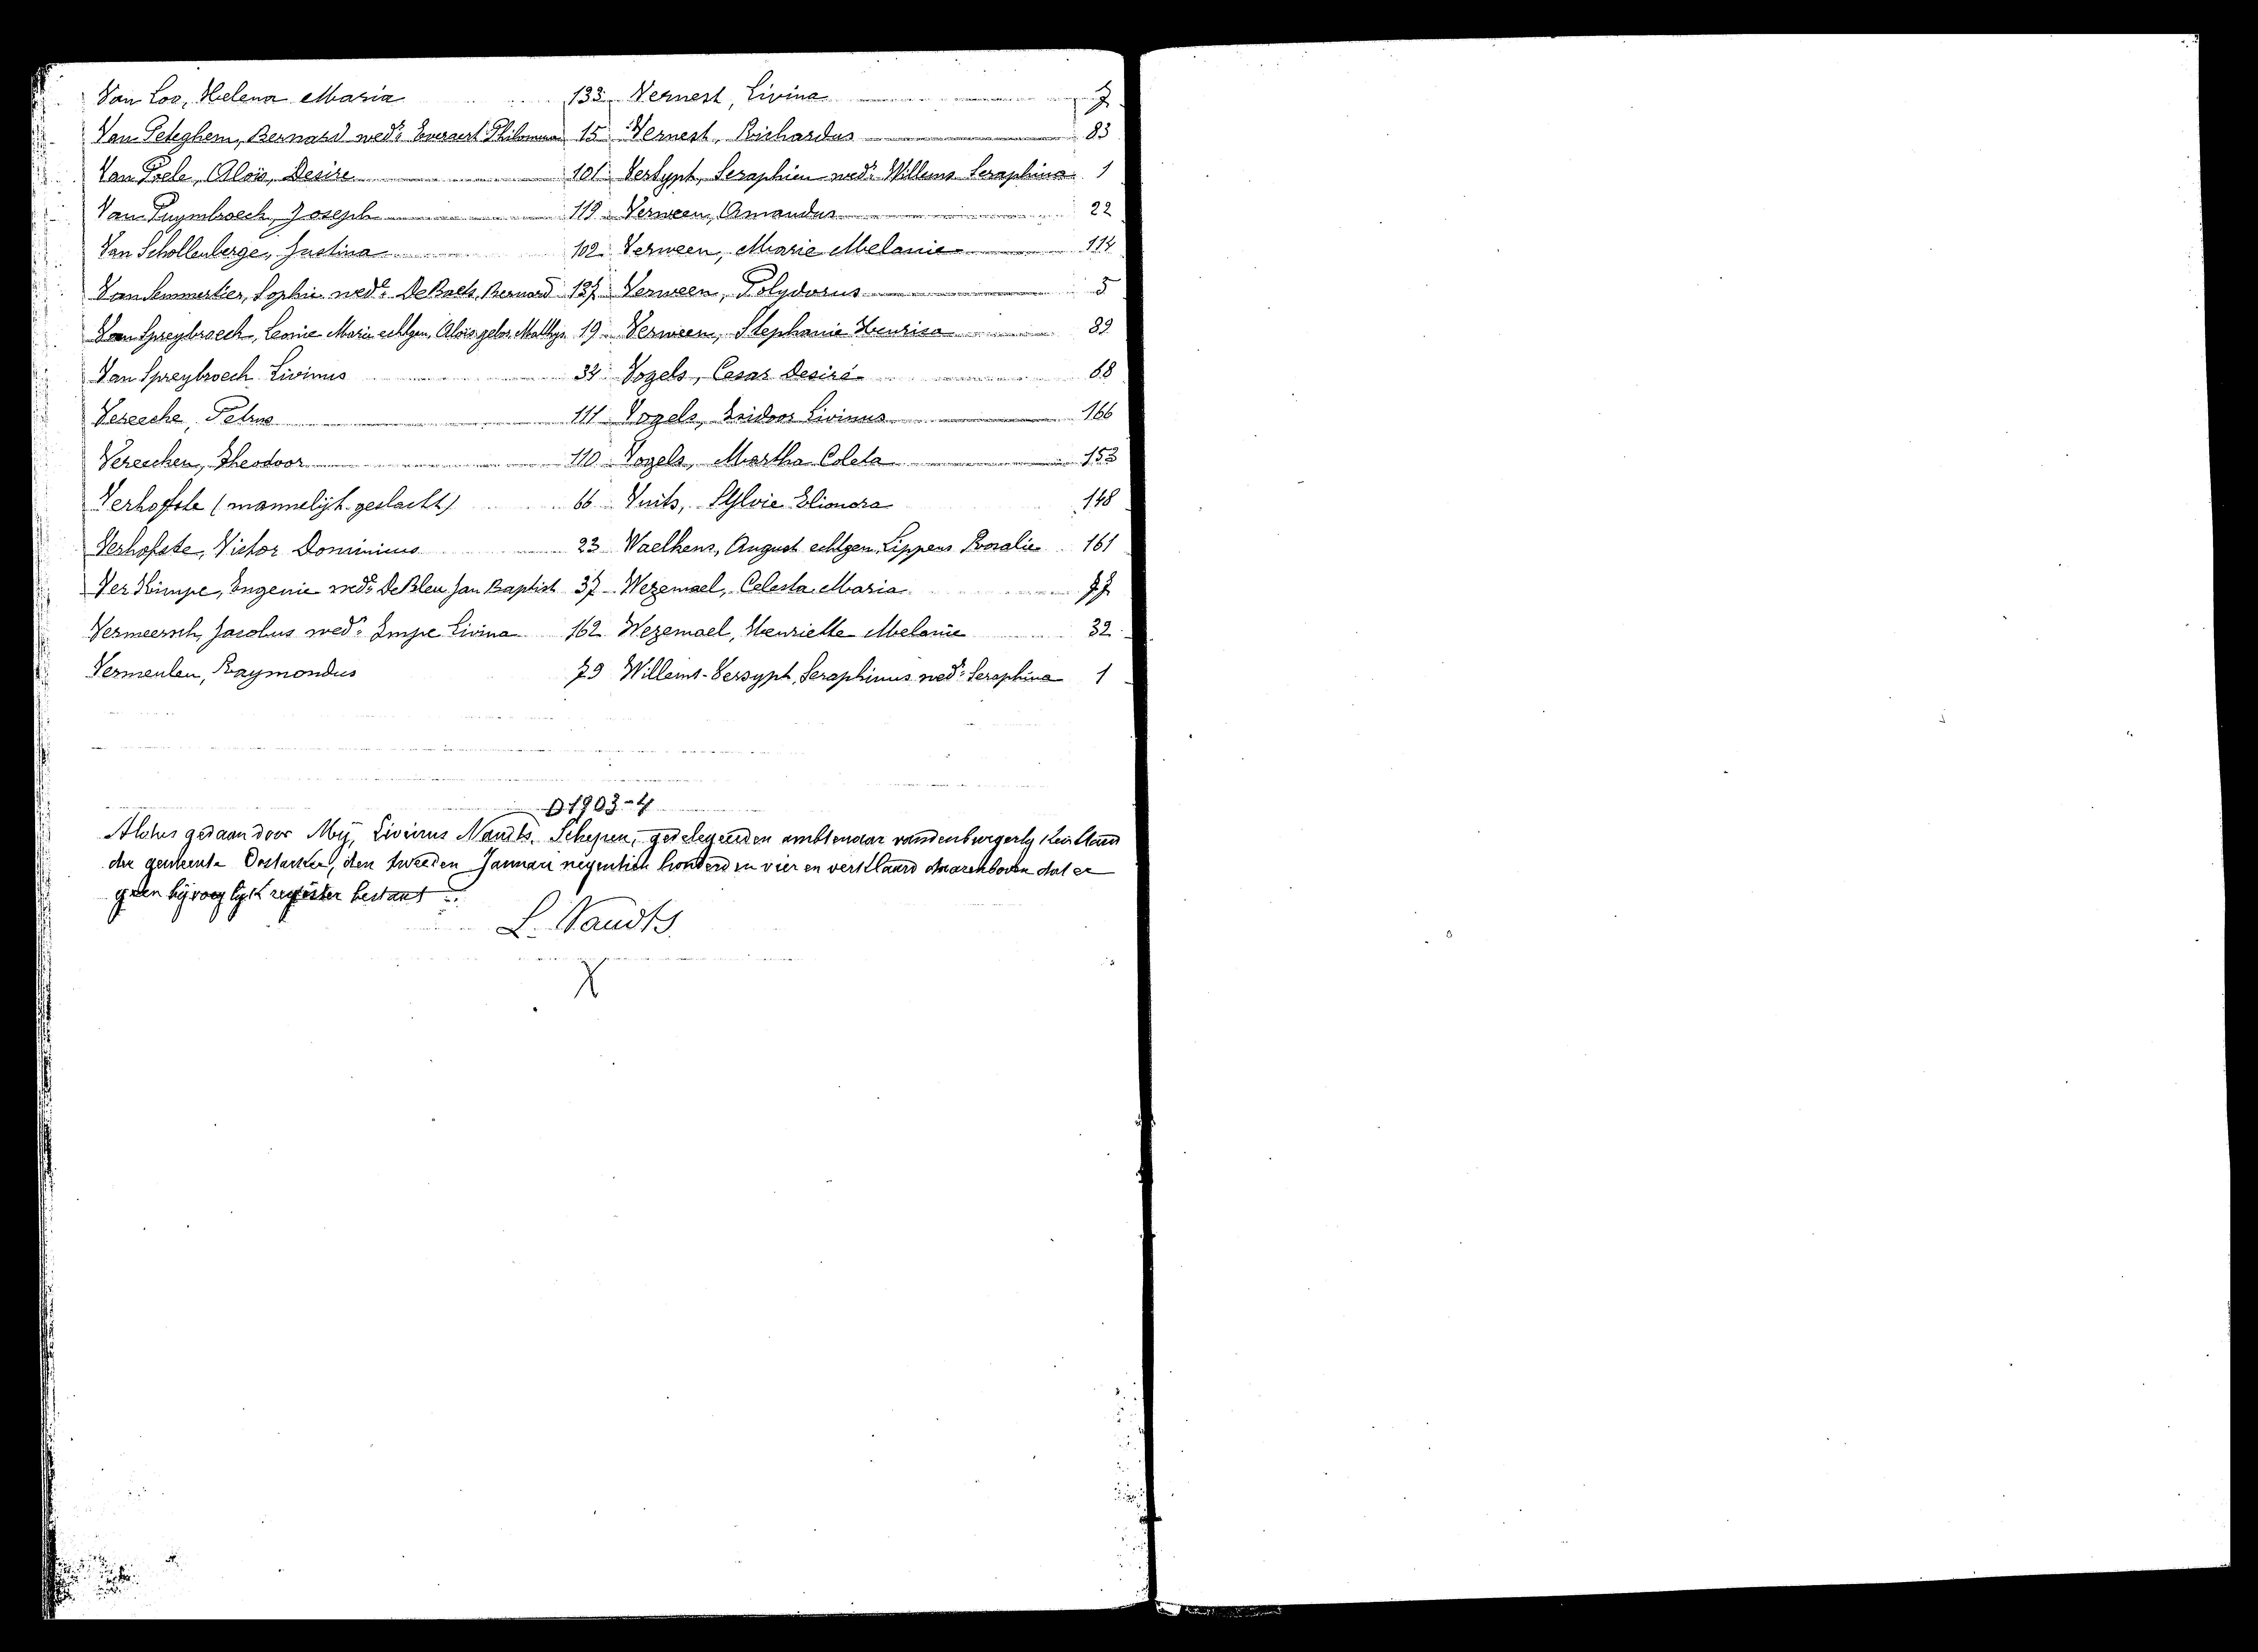 Van Loo, Helena Maria 133
Van Peteghem, Bernard wedr Everaert Philomena 15
Van Poele, Aloïs, Desire 101
Van Puymbroeck, Joseph 119
Van Schollenberge, Justina 102
Van Semmertier, Sophie wede De Baets, Bernard 137
Van Spreybroeck, Leonie Marie echtgen. Aloïs gebrs Matthys 19
Van Spreybroeck Livinus 34
Vereecke, Petrus 111
Vereecken, Theodoor 110
Verhofste (mannelijk geslacht) 66
Verhofste, Victor Dominicus 23
Ver Kimpe, Eugenie wede De Bleu Jan Baptist 37
Vermeersch, Jacobus wedr Impe Livina 162
Vermeulen, Raymondus 79
Vernest, Livina 7
Vernest, Richardus 83
Versypt, Seraphien wedr Willems Seraphina 1
Verween, Amandus 22
Verween, Marie Melanie 114
Verween, Polydorus 5
Verween, Stephanie Henrica 89
Vogels, Cesar Desiré 68
Vogels, Isidoor Livinus 166
Vogels, Martha Coleta 153
Vuits, Sylvie Elionora 148
Waelkens, August echtgen. Lippens Rosalie 161
Wezemael, Celesta Maria 77
Wezemael, Henriette Melanie 32
Willems-Versypt, Seraphinus wedr Seraphina 1
D 1903-4
Aldus gedaan door Mij, Livinus Naudts, Schepen, gedelegeerden ambtenaar van den burgerlijken Stand
der gemeente Oostacker, den tweeden Januari negentien honderd en vier en verklaard daarenboven dat er
geen bijvoeglijk register bestaat
L. Naudts